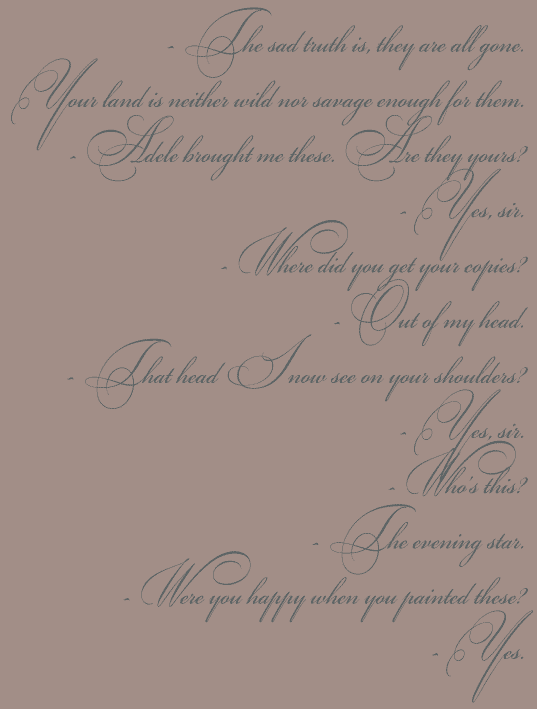 - The sad truth is, they are all gone.
Your land is neither wild nor savage enough for them.
- Adele brought me these. Are they yours?
- Yes, sir.
- Where did you get your copies?
- Out of my head.
- That head I now see on your shoulders?
- Yes, sir.
- Who's this?
- The evening star.
- Were you happy when you painted these?
- Yes.